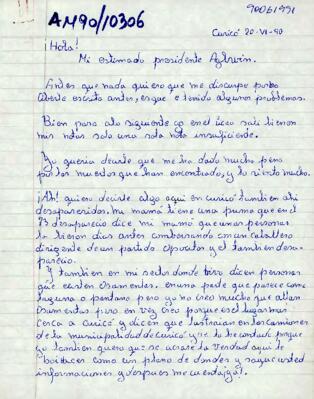 90061991
AM90/10306
Curicó 20-VI-90
¡Hola!
Mi estimado presidente Aylwin.
Antes que nada quiero que me disculpe por no
aberte escrito antes, es que e tenido algunos problemas.
Bien para ato siguiente en el liceo salí bien en
mis notas solo una nota insuficiente.
Yo quería decirte que me ha dado mucha pena
por los muertos que han encontrado, y lo siento mucho.
¡Ah! quiero decirte algo aquí en curicó tambien ahi
desaparecidos. mi mamá tiene una prima que en el
73 desaparecio dice mi mamá que unas personas
la vieron dias antes conbersando con un caballero
dirigente de un partido Opocitor y el tambien desa-
parecio.
Y tambien en mi sector donde vivo dicen personas
que existen Osamentas. en una parte que parece como
laguna o pantano pero yo no creo mucho que allan
Osamentas pero en vez creo porque es el lugar mas
cerca a curicó y dicen que las traian en los camiones
de la municipalidad de curicó, y se lo he contado porque
yo tambien quiero que se aclare la verdad aquí te
como un plano de donde es y saque usted
informaciones y despues me cuenta ¡ya!.